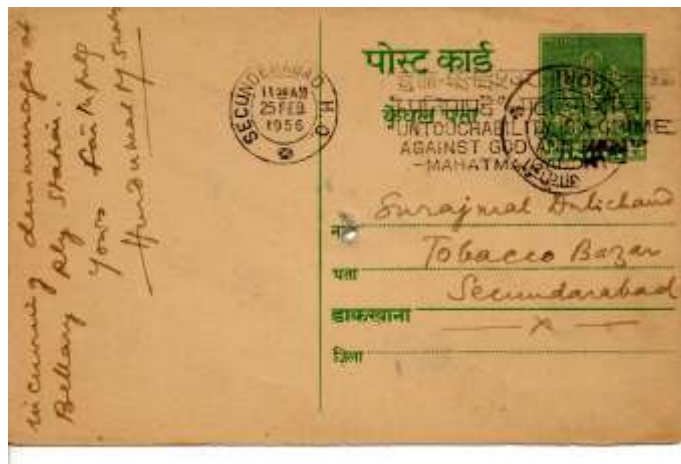 incurring demurrages at
Bellary Rly Station.
Yours faithfly
SECUNDERABAD. H.O
11 30 AM
25 FEB
1956
पोस्ट कार्ड
केवल पता
UNTOUCHABILITY IS A CRIME
AGAINST GOD AND
-MAHATMA
Surajmal Dulichand
Tobacco Bazar
पता
Secundarabad
डाकखाना
— x —
ज़िला